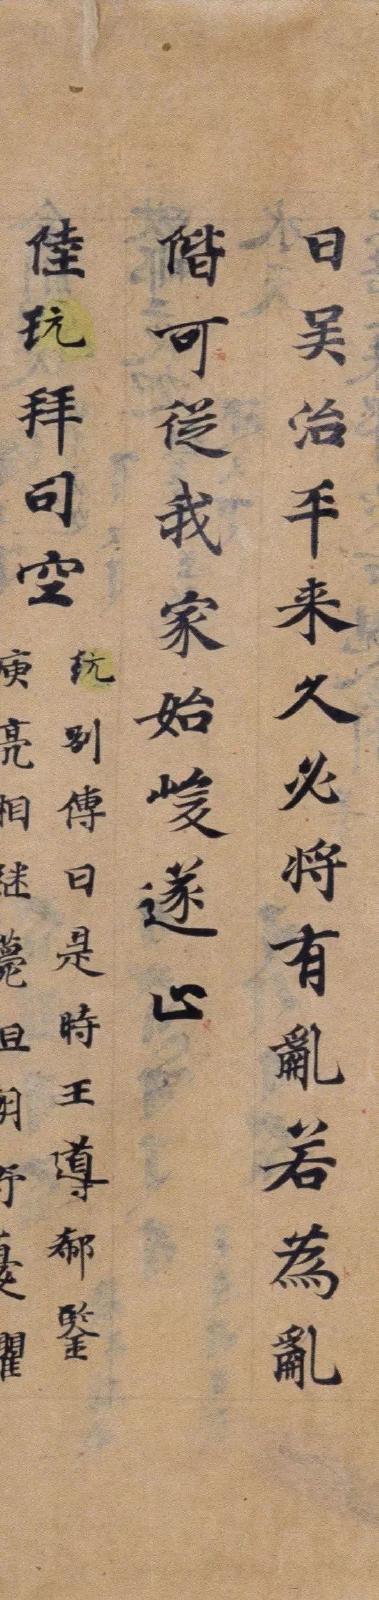 日吴治平来久必将有亂若為亂
偕可從我家始㕙遂止
陸玩拜司空
玩別傳曰是時王導郗鑒
庾亮相継薨且朝野憂懼